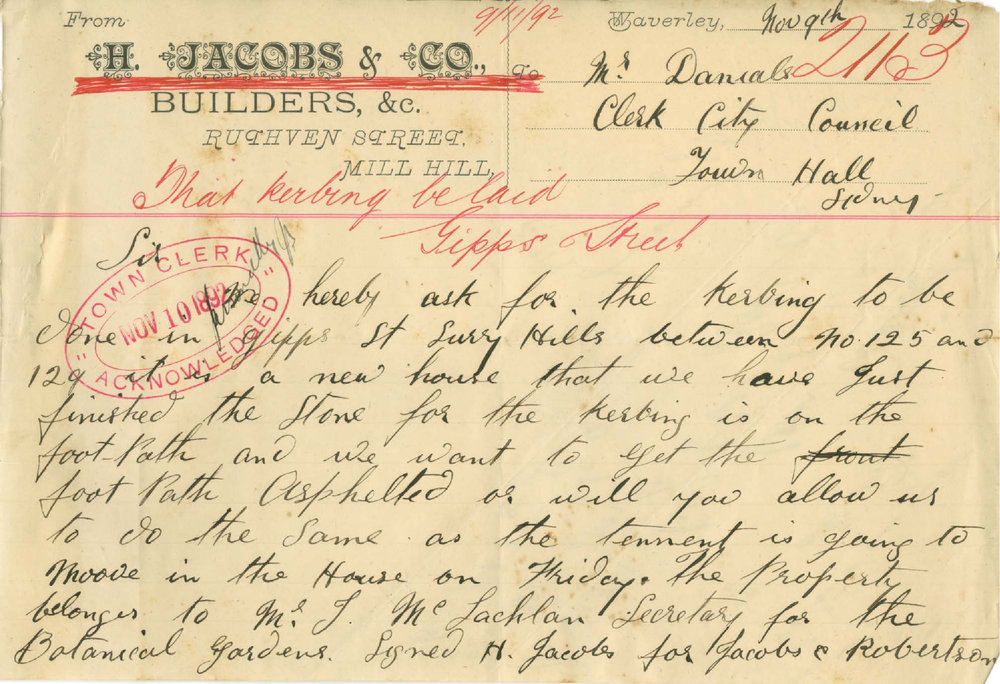 9/11/92
From
H. JACOBS & CO.,
BUILDERS, &c.
RUTHVEN STREET,
MILL HILL,
Waverley, Nov 9th 1892
2113
To Mr Danials
Clerk City Council
Town Hall
Sidney
That kerbing be laid
Gipps Street
"TOWN CLERK"
NOV 10 1892
ACKNOWLEDGED
Sir
We hereby ask for the Kerbing to be
done in Gipps St Surry Hills between No 125 and
129 it is a new house that we have Just
finished the Stone for the Kerbing is on the
foot-Path and we want to get the front
foot Path Asphelted or will you allow us
to do the Same as the tennent is going to
Moove in the House on Friday. The Property
belonges to Mr J. McLachlan Secretary for the
Botanical Gardens. Signed H. Jacobs for Jacobs & Robertson